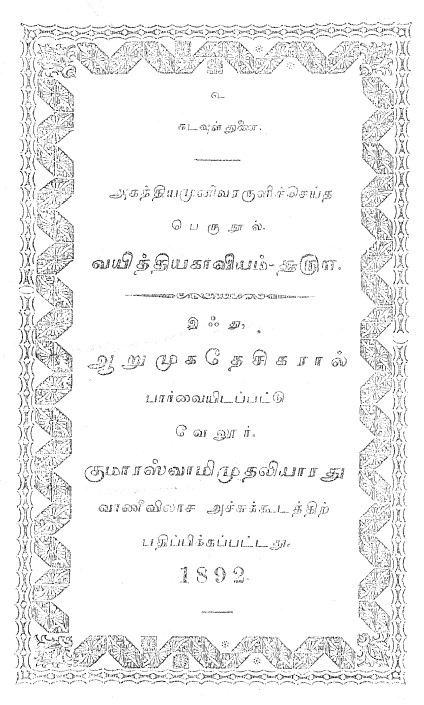 உ
கடவுள் துணை.
அகத்தியமுனிவரருளிச்செய்த
பெருநூல்.
வயித்தியகாவியம்-௲௫௱.
இஃது,
ஆறுமுகதேசிகரால்
பார்வையிடப்பட்டு
வேலூர்.
குமாரஸ்வாமிமுதலியாரது
வாணீவிலாச அச்சுக்கூடத்திற்
பதிப்பிக்கப்பட்டது.
1892